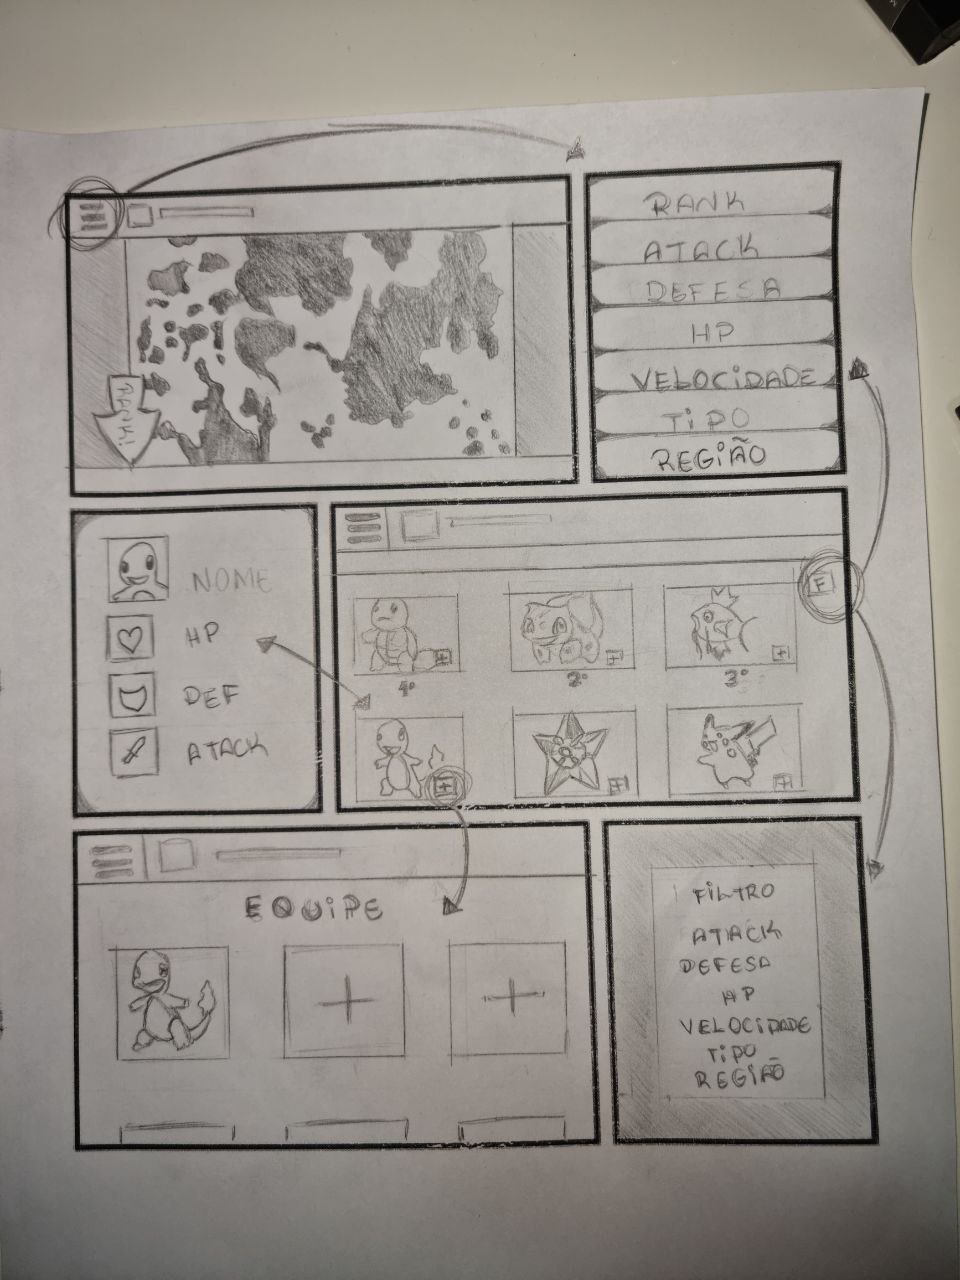 RANK!
RANK
ATACK
DEFESA
HP
VELOCIDADE
TIPO
REGIÃO
NOME
HP
DEF
ATACK
F
1º
2º
3º
EQUIPE
FILTRO
ATACK
DEFESA
HP
VELOCIDADE
TIPO
REGIÃO